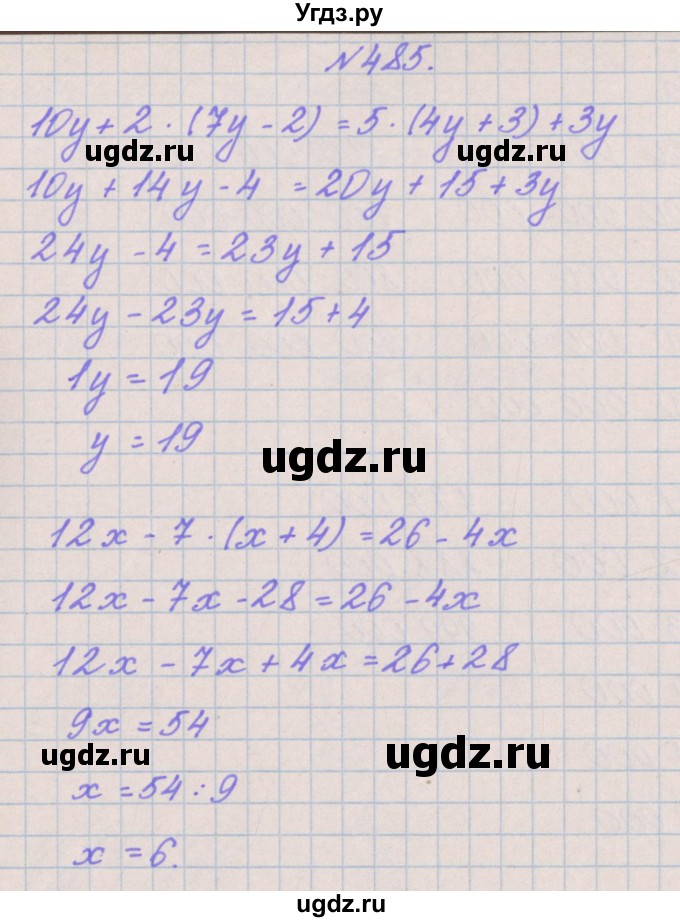 Угдз.ру
№485.
10y + 2 · (7y - 2) = 5 · (4y + 3) + 3y
ugdz.ru ugdz.ru
10y + 14y - 4 = 20y + 15 + 3y
24y - 4 = 23y + 15
24y - 23y = 15 + 4
1y = 19
y = 19
ugdz.ru
12x - 7 · (x + 4) = 26 - 4x
12x - 7x - 28 = 26 - 4x
12x - 7x + 4x = 26 + 28
9x = 54
ugdz.ru ugdz.ru
x = 54 : 9
x = 6.
ugdz.ru